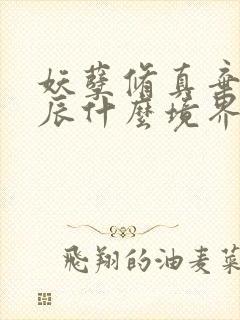 妖孽修真弃
辰什麽境界
飛翔的油麦菜